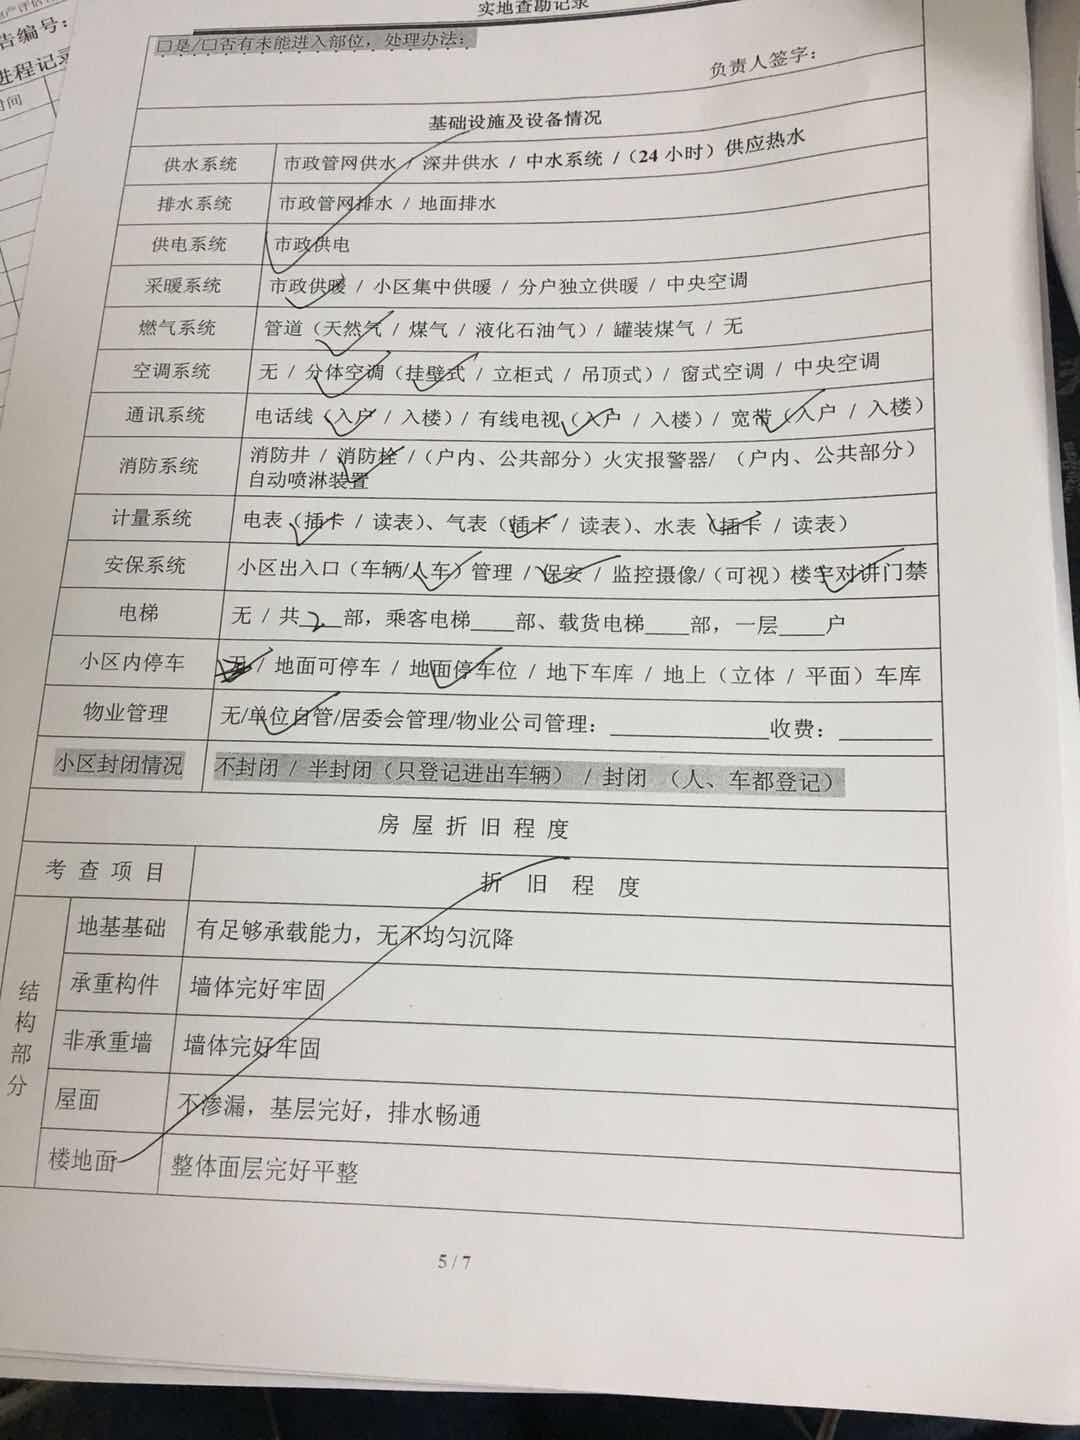 产评估
告编号：
进程记录
时间
实地查勘记录
□是/□否有未能进入部位，处理办法：
负责人签字：
基础设施及设备情况
供水系统 市政管网供水 / 深井供水 / 中水系统 /（24 小时）供应热水
排水系统 市政管网排水 / 地面排水
供电系统 市政供电
采暖系统 市政供暖 / 小区集中供暖 / 分户独立供暖 / 中央空调
燃气系统 管道（天然气 / 煤气 / 液化石油气）/ 罐装煤气 / 无
空调系统 无 / 分体空调（挂壁式 / 立柜式 / 吊顶式）/ 窗式空调 / 中央空调
通讯系统 电话线（入户 / 入楼）/ 有线电视（入户 / 入楼）/ 宽带（入户 / 入楼）
消防系统 消防井 / 消防栓 /（户内、公共部分）火灾报警器/ （户内、公共部分）
自动喷淋装置
计量系统 电表（插卡 / 读表）、气表（插卡 / 读表）、水表（插卡 / 读表）
安保系统 小区出入口（车辆/人车）管理 / 保安 / 监控摄像/（可视）楼宇对讲门禁
电梯 无 / 共 2 部，乘客电梯____部、载货电梯____部，一层____户
小区内停车 无 / 地面可停车 / 地面停车位 / 地下车库 / 地上（立体 / 平面）车库
物业管理 无/单位自管/居委会管理/物业公司管理：______________收费：________
小区封闭情况 不封闭 / 半封闭（只登记进出车辆） / 封闭 （人、车都登记）
房屋折旧程度
考查项目 折旧程度
结构部分
地基基础 有足够承载能力，无不均匀沉降
承重构件 墙体完好牢固
非承重墙 墙体完好牢固
屋面 不渗漏，基层完好，排水畅通
楼地面 整体面层完好平整
5 / 7